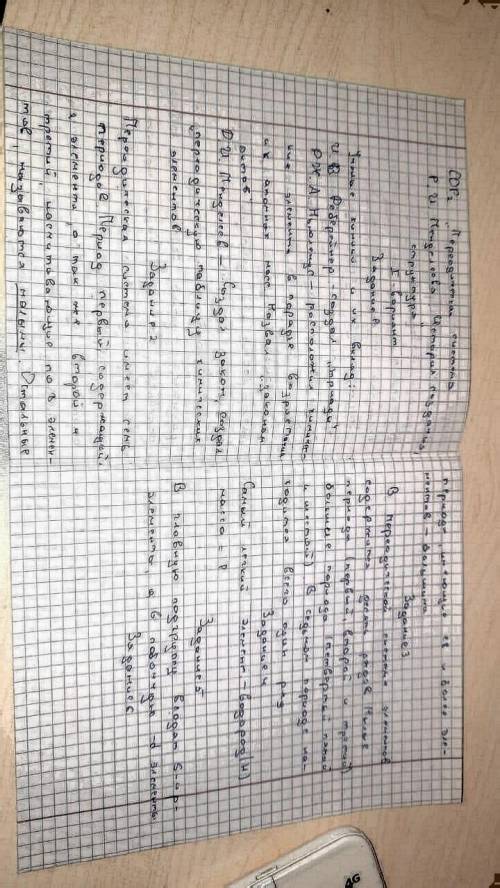 СОР 2 Периодическая система
Д. И. Менделеева. История создания,
структура
I вариант
Задание 1
Ученые химики и их вклад:
И. В. Деберейнер - создал "триады"
Дж. А. Ньюлендс - расположил химичес-
кие элементы в порядке возрастания
их атомных масс. Назвал "законом
октав"
Д. И. Менделеев - создал закон, создал
"периодическую таблицу химических
элементов"
Задание 2
Периодическая система имеет семь
периодов. Период первый, содержащий
2 элемента, а так же второй и
третий, насчитывающие по 8 элемен-
тов, называются малыми. Остальные
периоды имеющие 18 и более эле-
ментов - большими
Задание 3
В периодической системе элементов
содержится десять рядов. Малые
периоды (первый, второй и третий)
большие периоды (четвертый пятый
и шестой). В седьмом периоде на-
ходится всего один ряд
Задание 4
Самый легкий элемент - водород (H)
масса = 1
Задание 5
В главную подгруппу входят S и p-
элементы, а в побочную - d элементы
Задание 6
4G